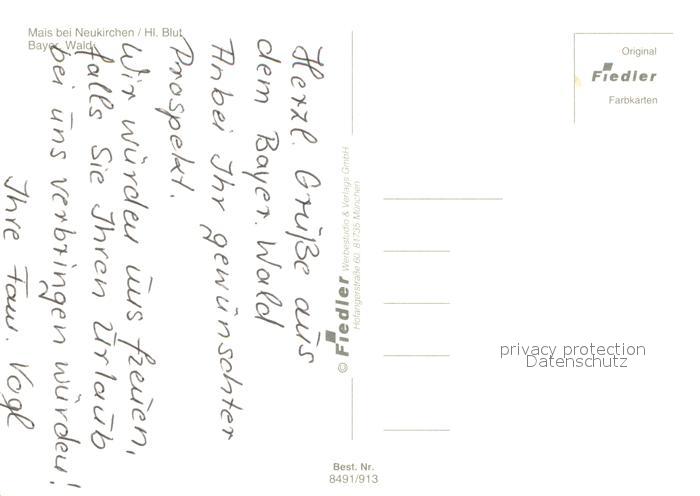 Mais bei Neukirchen / Hl. Blut
Bayer. Wald
Herzl. Grüße aus
dem Bayer. Wald
Anbei Ihr gewünschter
Prospekt.
Wir würden uns freuen,
falls Sie Ihren Urlaub
bei uns verbringen würden!
Ihre Fam. Vogl
© Fiedler Werbestudio & Verlags GmbH
Hofangerstraße 60 · 81735 München
Best. Nr.
8491/913
Original
Fiedler
Farbkarten
privacy protection
Datenschutz